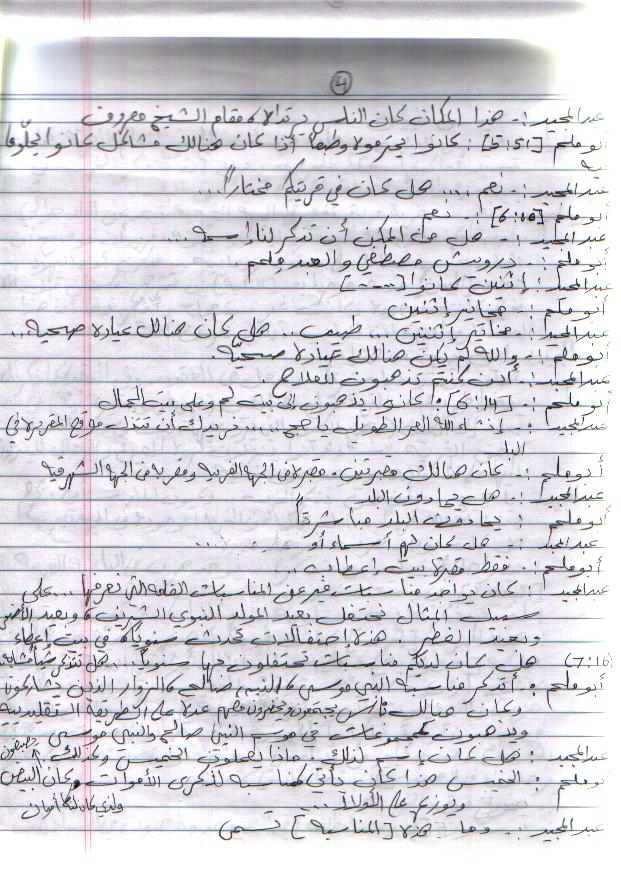 4
عبد المجيد :- هذا المكان كان الناس يرتدالا مقام الشيخ معروف
أبو ملحم [5:51] : كانوا يحترمولا وطبعاً اذا كان هنالك مشاكل كانوا يحلّوها
فيه
عبد المجيد :- نعم .... هل كان في قريتكم مختاراً ....
أبو ملحم [6:00] :- نعم
عبد المجيد :- هل من الممكن أن تذكر لنا إسمه ...
أبو ملحم :- درويش مصطفى والعبد ملحم
عبد المجيد :- إثنين كانوا [---]
أبو ملحم :- مخاتير إثنين
عبد المجيد :- مخاتير إثنين .. طيب .. هل كان هنالك عيادلا صحيه ...
أبو ملحم :- والله لم يكن هنالك عيادلا صحيّه
عبد المجيد :- أين كنتم تذهبون للعلاج .
أبو ملحم : [6:14] كانوا يذهبون إلى بيت لحم وعلى بيت جمال
عبد المجيد :- إنشاء الله العمر الطويل يا حج .... نريدك أن تتذكر مواقع المقبرلا في
البلد
أبو ملحم :- كان هنالك مقبرتين . مقبرلا من الجهه الغربيه ومقبره من الجهه الشرقيه
عبد المجيد :- هل يحادون البلد
أبو ملحم : يحادون البلد مباشرةً
عبد المجيد :- هل كان لهم أسماء أو ....
أبو ملحم :- فقط مقبرلا بيت إعطاب ..
عبد المجيد : كان يوجد مناسبات غير عن المناسبات العامه التي نعرفها ... على
سبيل المثال نحتفل بعيد المولد النبوي الشريف وبعيد الأضحى
وبعيد الفطر . هذلا إحتفالات تحدث سنوياً في بيت إعطاب
(7:10) هل كان لديكم مناسبات تحتفلون بها سنوياً ... هل تتذكر
أبو ملحم :- أتذكر مناسبة النبي موسى النبي صالح الزوار الذين يشاركون
وكان هنالك ناس يجتمعون ويحضرون على الطريقه التقليديه
ويذهبون مجموعات في موسم النبي صالح والنبي موسى
عبد المجيد :- هل كان إسم لذلك . ماذا يعملون الخميس وكذلك
أبو ملحم : الخميس هذا كان يأتي كمناسبه لذكرى الأموات وكان البيض
ويوزع على الأولاد ...
عبد المجيد :- وما هذلا [المناسبه] تسمى